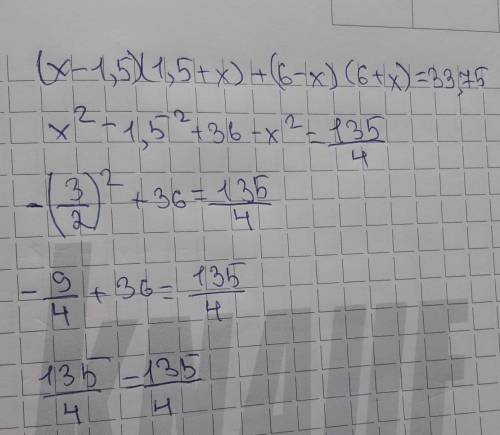 (x-1,5)(1,5+x)+(6-x)(6+x)=33,75
x²-1,5²+36-x²=135/4
-(3/2)²+36=135/4
-9/4+36=135/4
135/4=135/4
KNAUF